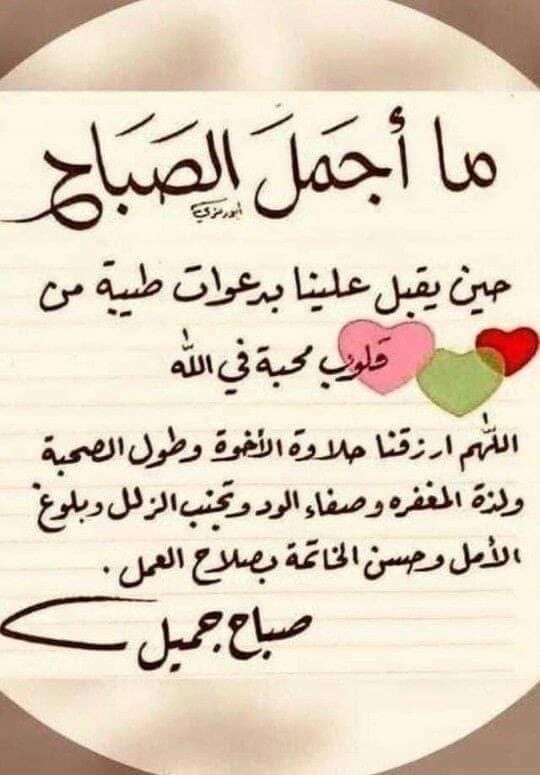 ما أجمَلَ الصَبَاح
حين يقبل علينا بدعوات طيبة من
قلوب محبة في الله
اللهم ارزقنا حلاوة الأخوة وطول الصحبة
ولذة المغفره وصفاء الود وتجنب الزلل وبلوغ
الأمل وحسن الخاتمة بصلاح العمل .
صباح جميل